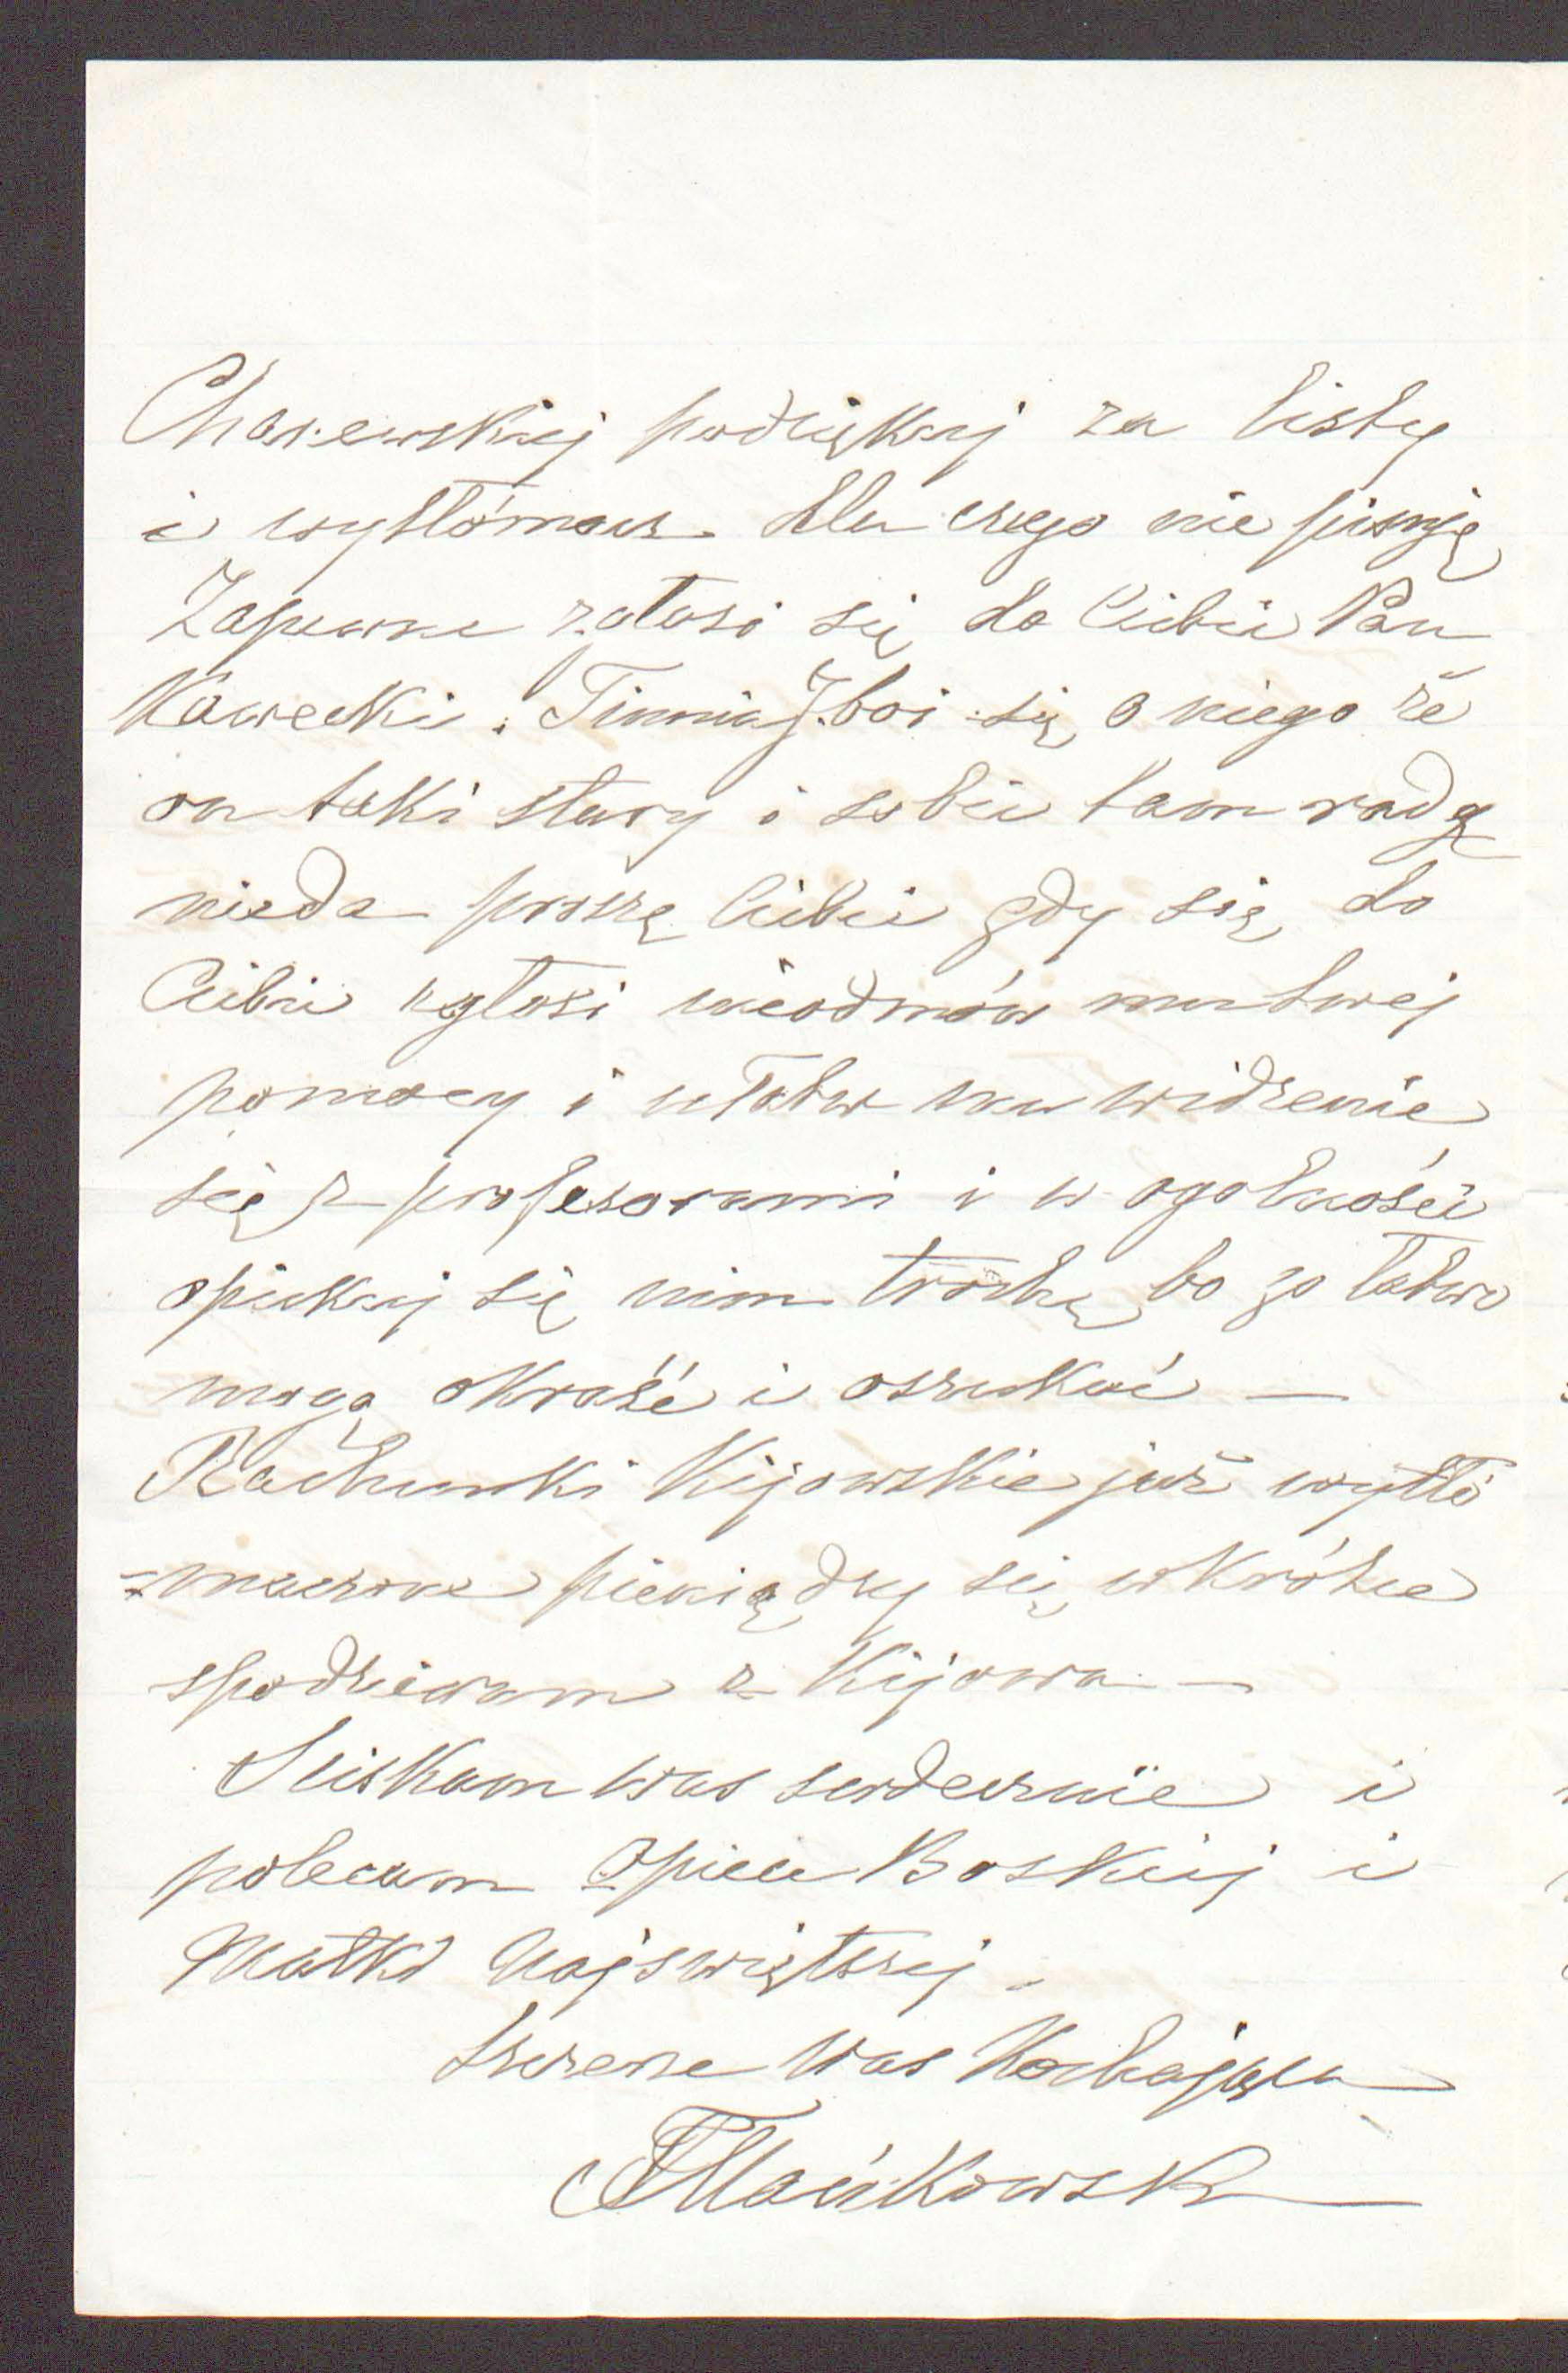 Charewskiej podziękuj za listy
i wytłómacz dla czego nie pisuję
Zapewne zgłosi się do Ciebie Pan
Kawecki. boi się o niego że
on taki stary i sobie tam radę
nieda proszę Ciebie gdy się do
Ciebie zgłosi nieodmów mu twej
pomocy i ułatw mu widzenie
się z profesorami i w ogolności
opiekuj się nim trochę bo go łatwo
mogą okraść i oszukać —
Rachunki Kijowskie już wytłó
=maczone pieniądzy się wkrótce
spodziewam z Kijowa —
Sciskam was serdecznie i
polecam Opiece Boskiej i
Matki Najswiętszej.
Szczerze Was Kochająca